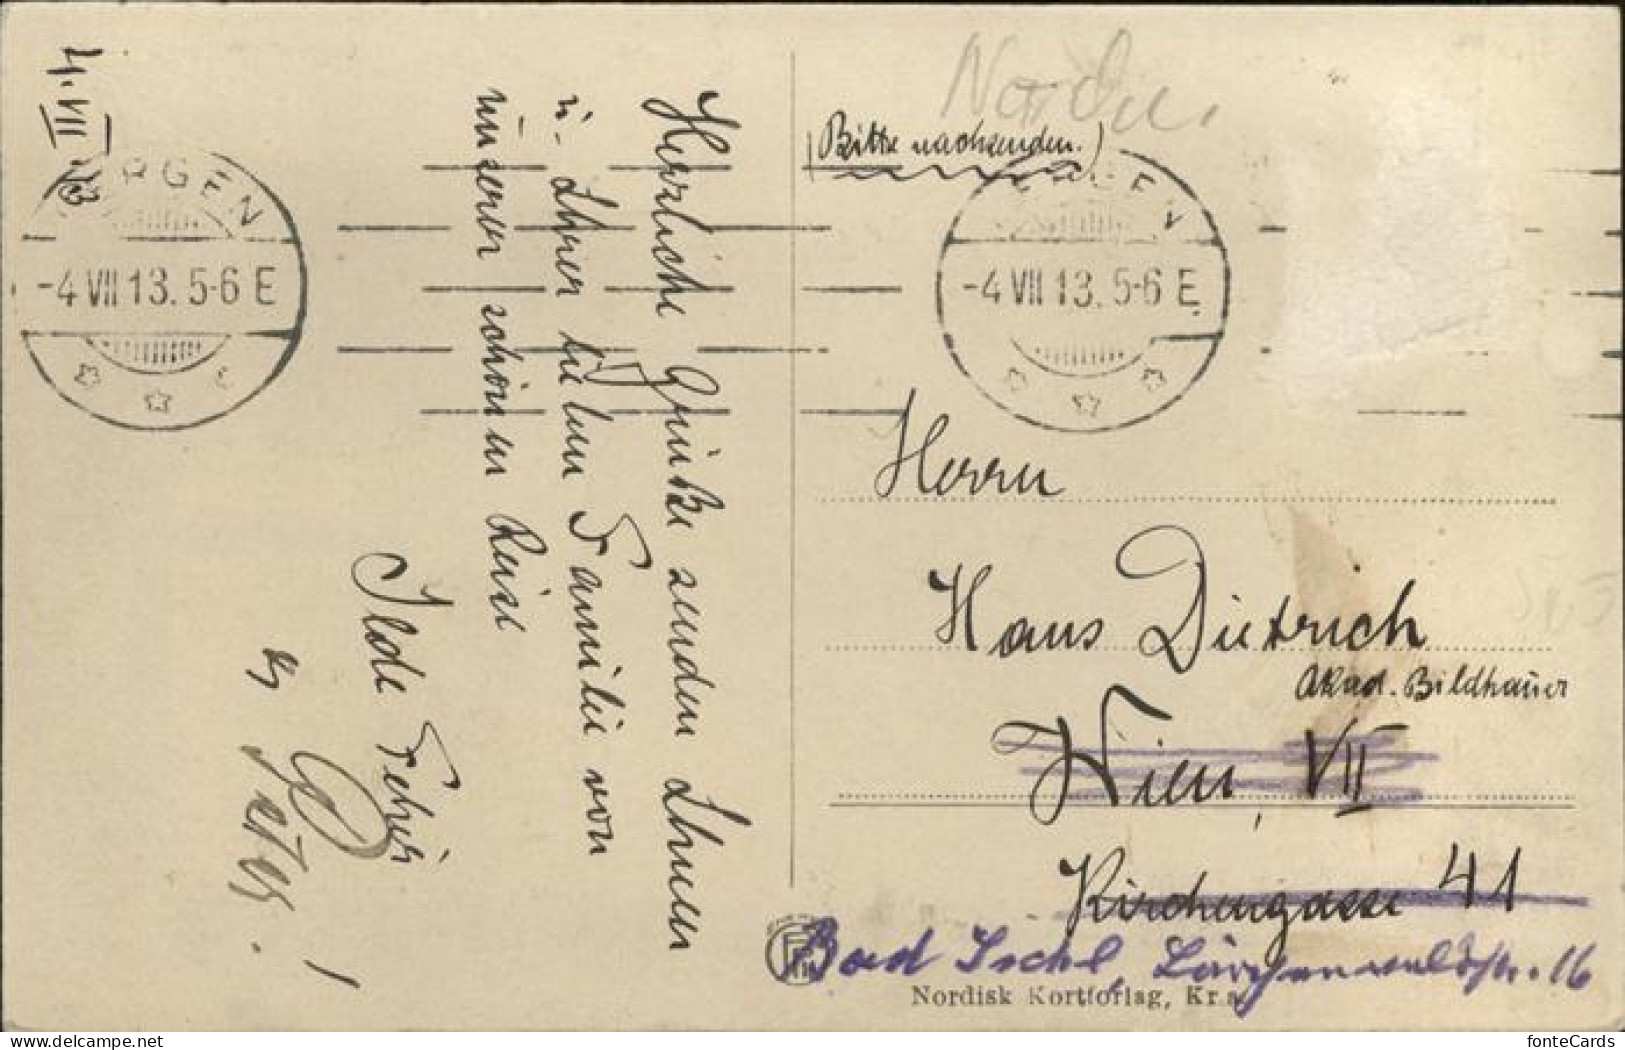 4. VII 13
BERGEN
-4 VII 13. 5-6 E
Herzliche Grüße senden Ihnen
u. Ihrer lieben Familie von
unserer schönen Reise
Ilde Feher
Norden.
(Bitte nachsenden.)
-4 VII 13. 5-6 E
Herrn
Hans Dietrich
Akad. Bildhauer
Wien, VII
Kirchengasse 41
Bad Ischl, 16
Nordisk Kortforlag, Kr.a.
fonteCards